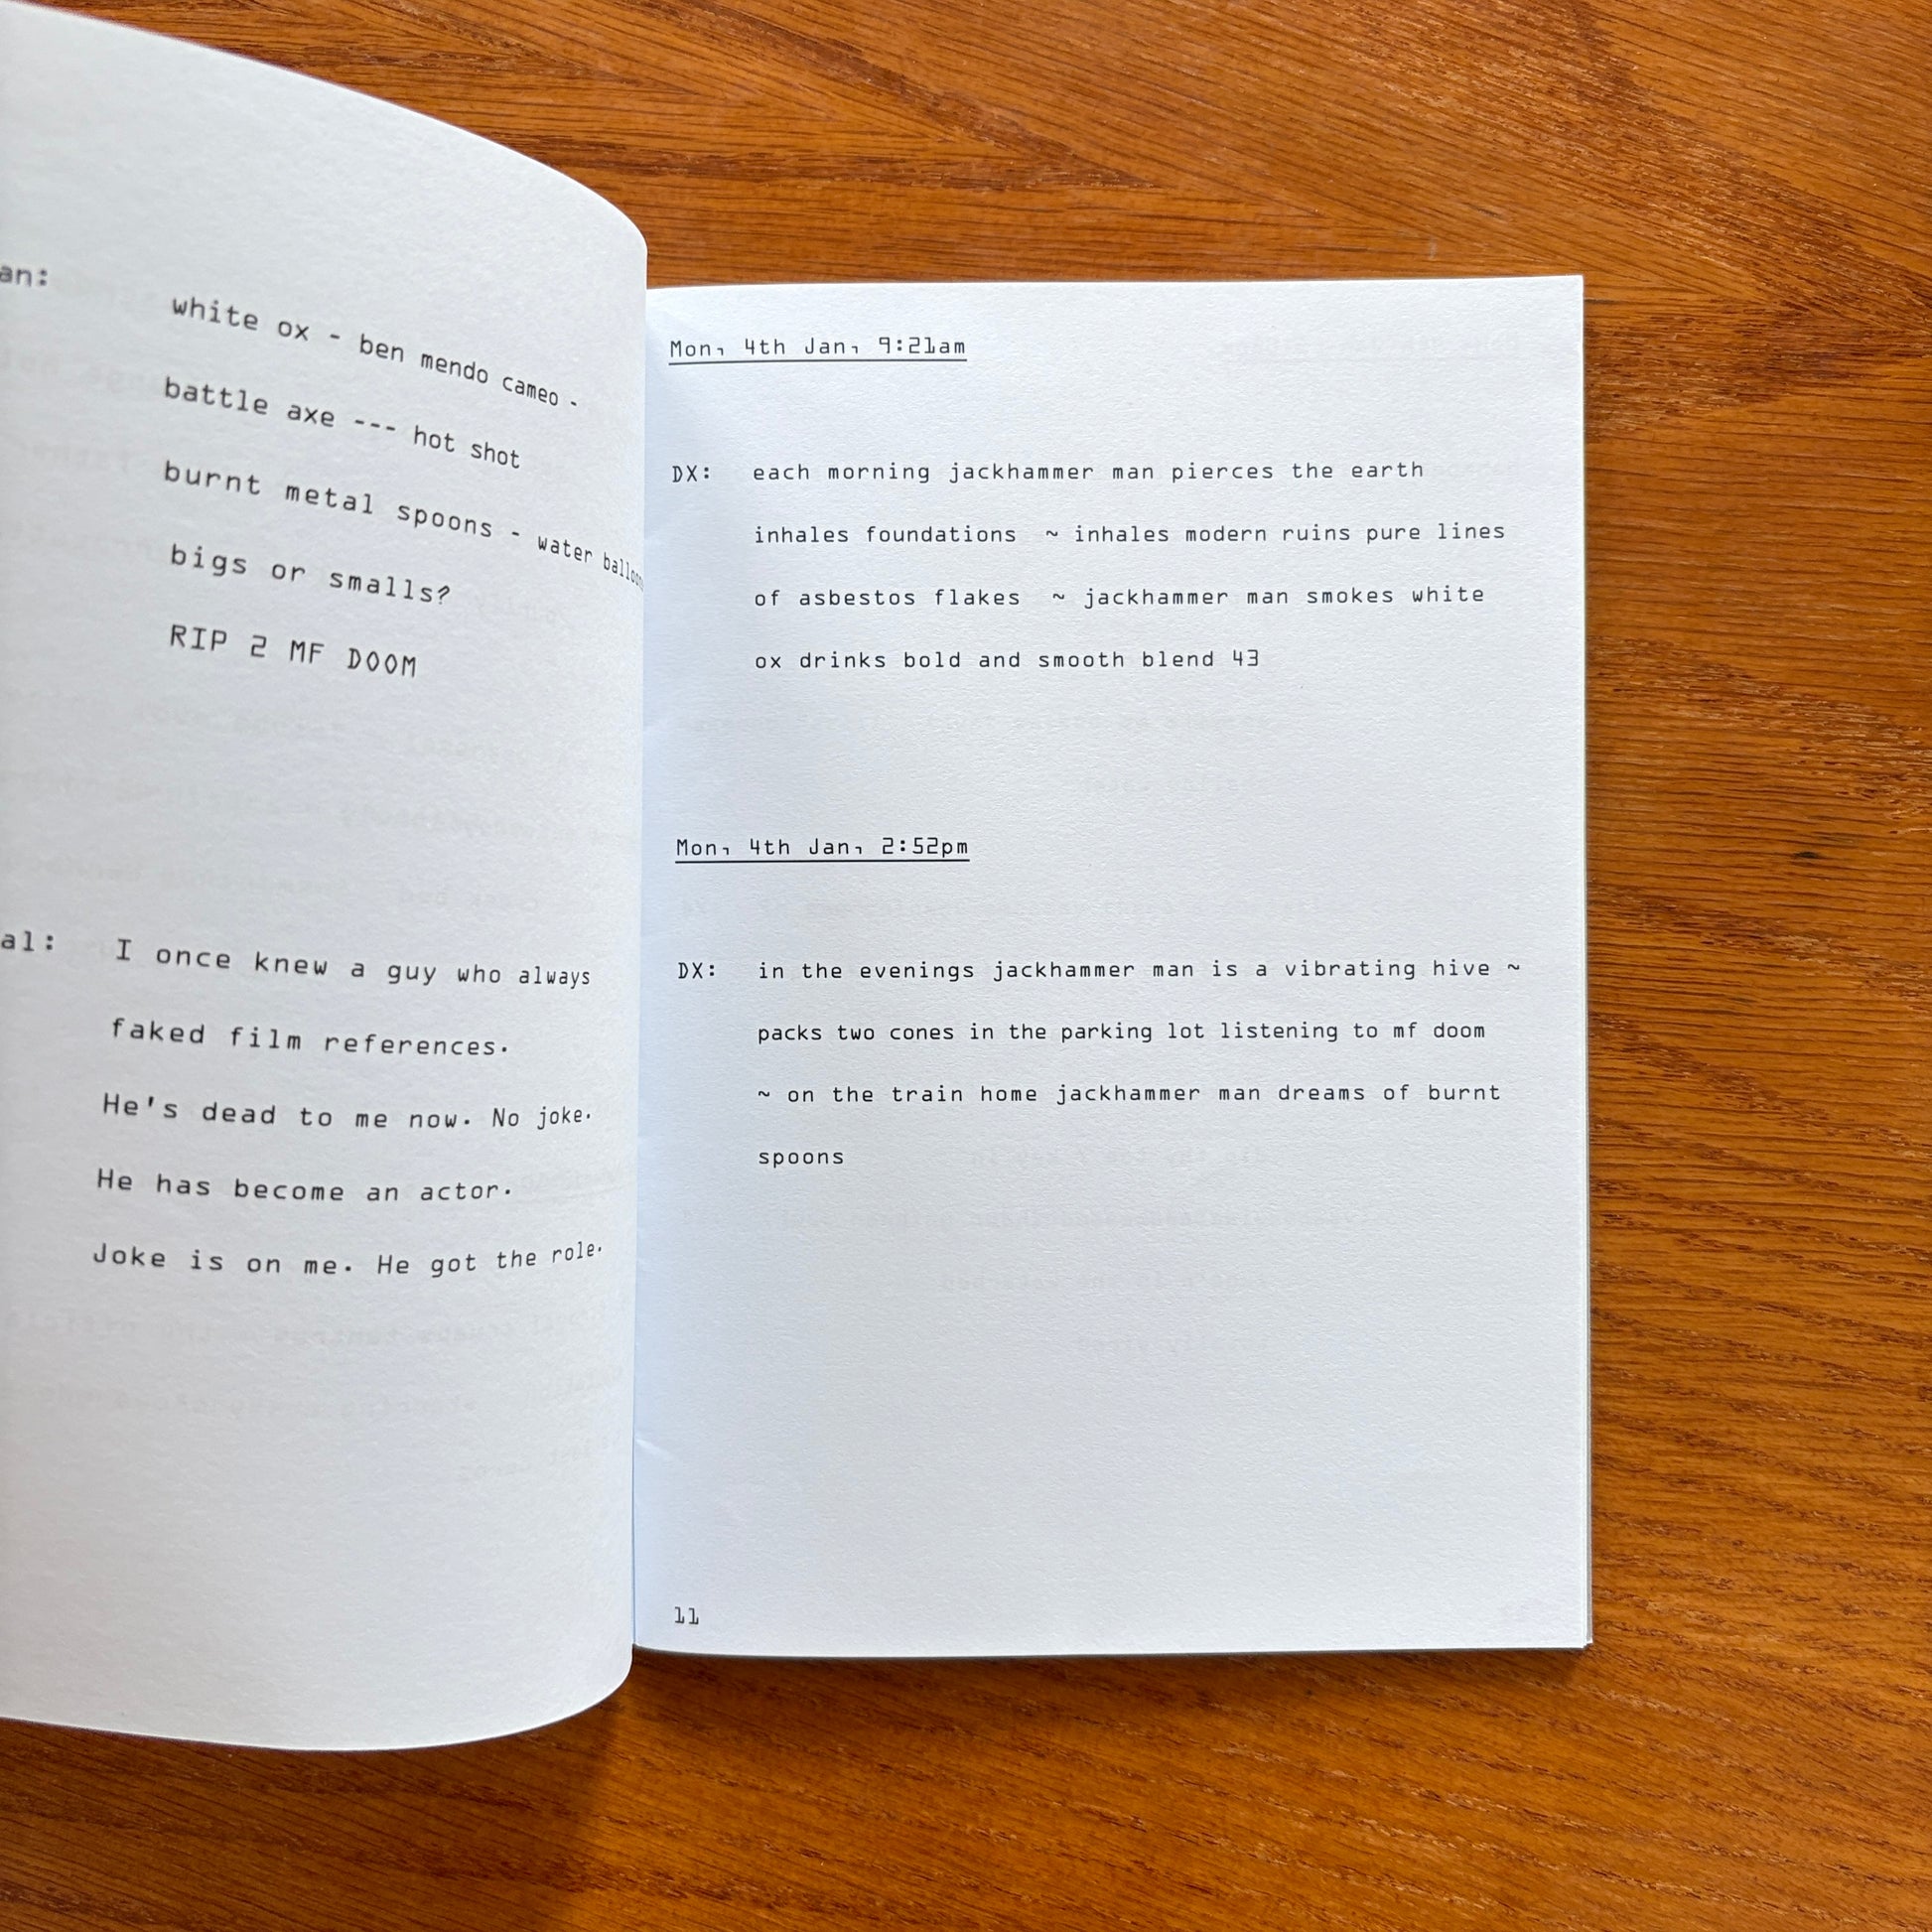 an:
white ox - ben mendo cameo -
battle axe --- hot shot
burnt metal spoons - water
bigs or smalls?
RIP 2 MF DOOM
al: I once knew a guy who always
faked film references.
He's dead to me now. No joke.
He has become an actor.
Joke is on me. He got the role.
Mon, 4th Jan, 9:21am
DX: each morning jackhammer man pierces the earth
inhales foundations ~ inhales modern ruins pure lines
of asbestos flakes ~ jackhammer man smokes white
ox drinks bold and smooth blend 43
Mon, 4th Jan, 2:52pm
DX: in the evenings jackhammer man is a vibrating hive ~
packs two cones in the parking lot listening to mf doom
~ on the train home jackhammer man dreams of burnt
spoons
11